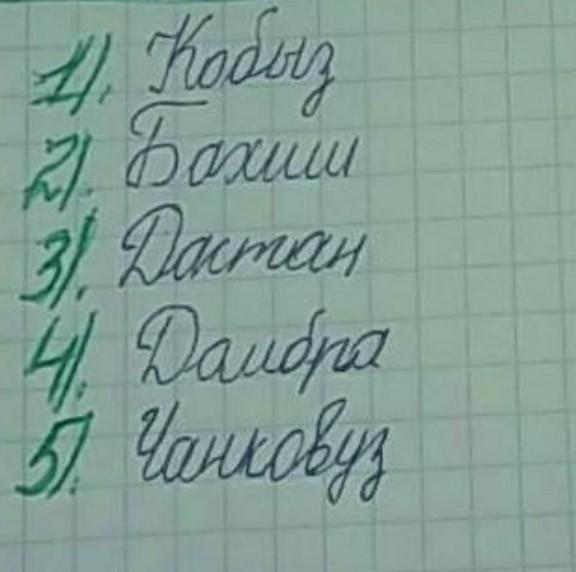 1). Кобыз
2). Бахши
3). Дастан
4). Домбра
5). Чанковуз